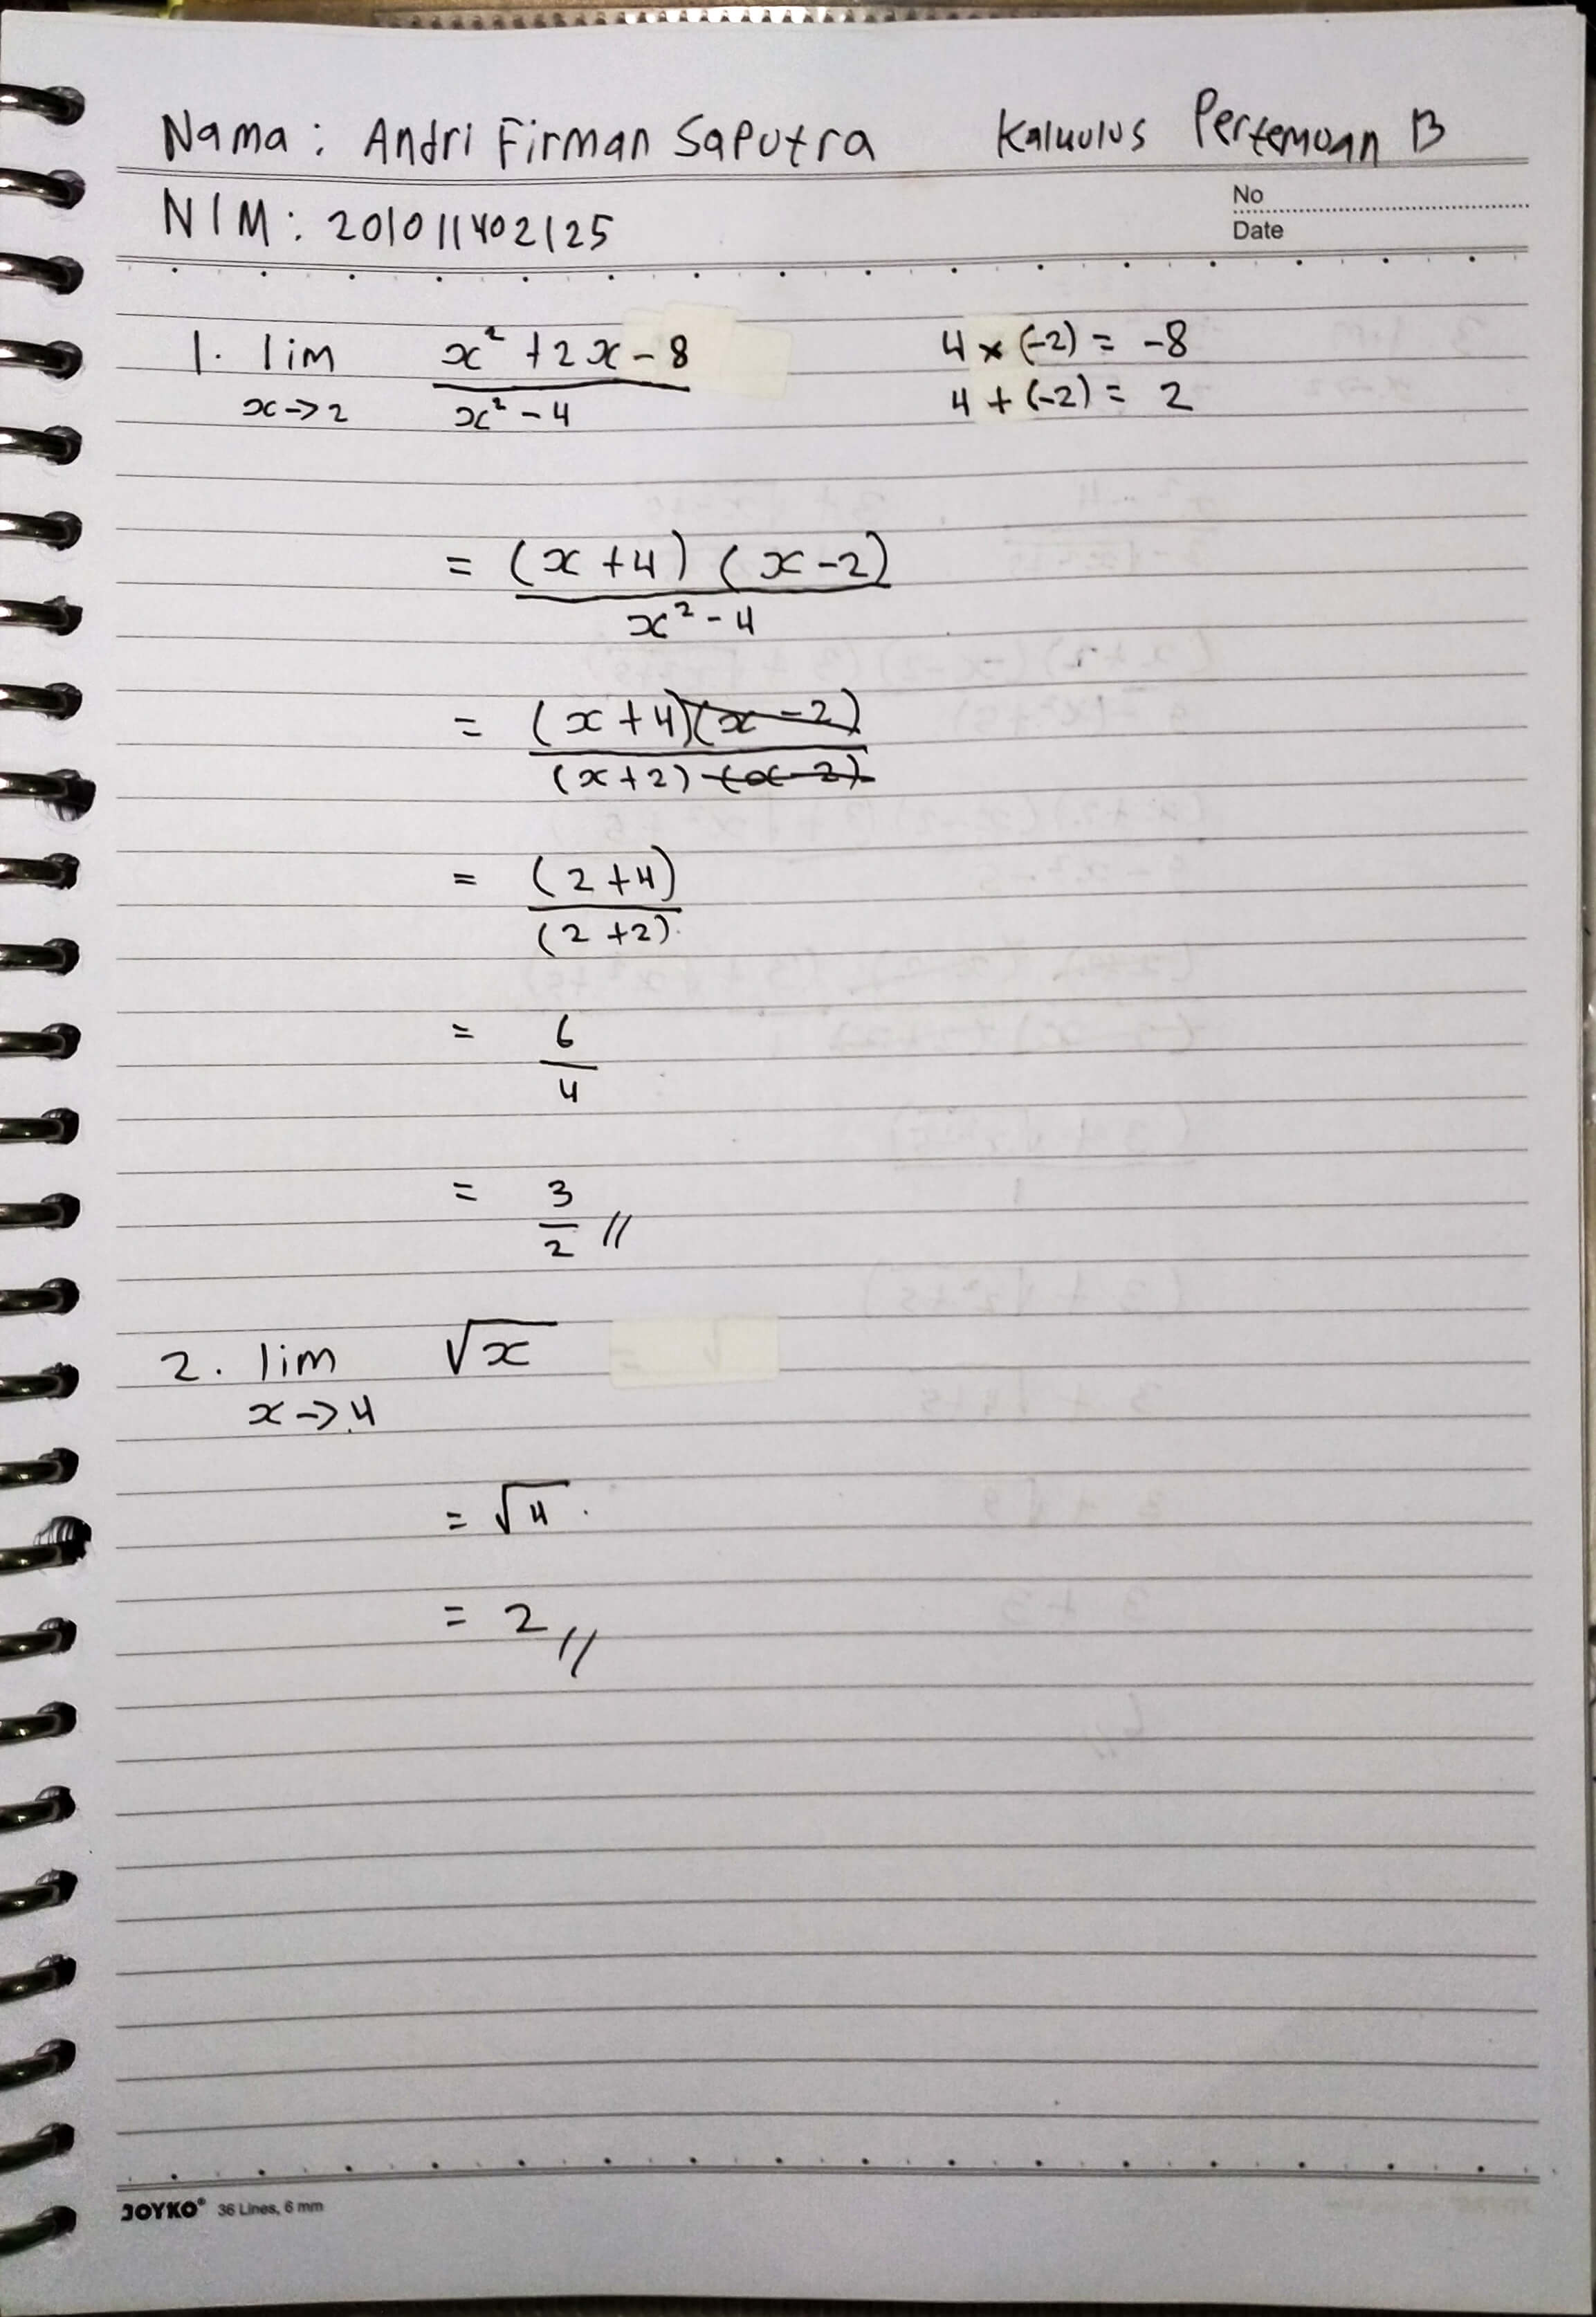 Nama : Andri Firman Saputra Kalkulus Pertemuan 13
NIM : 201011402125
No
Date
1. lim x² + 2x - 8 4 × (-2) = -8
x→2 x² - 4 4 + (-2) = 2
= (x + 4) (x - 2)
x² - 4
= (x + 4)(x - 2)
(x + 2) (x - 2)
= (2 + 4)
(2 + 2)
= 6
4
= 3
2 //
2. lim √x
x→4
= √4
= 2 //
JOYKO® 36 Lines, 6 mm